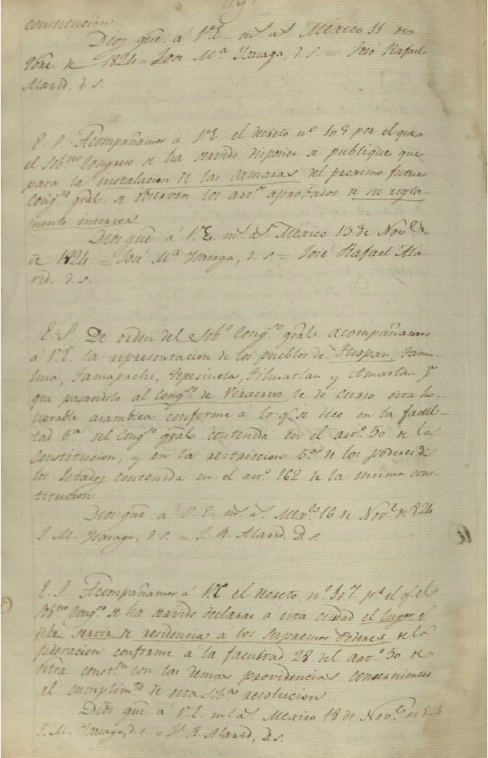 constitucion
Dios gue. á V.E. ms. as. México 11 de
de 1824 = José Ma. d.s. = José Rafael
Alarid, d.s.
E. S. Acompañamos á V.E. el decreto no. por el que
el Sobno. Congreso se ha servido disponer se publique que
para la instalacion de las camaras del proximo futuro
Congo. gral. se observen los artos. aprobados de su regla-
mento interior
Dios gue. á V.E. ms. as. México 13 de Nove.
de 1824 = José Ma. d.s. = José Rafael Ala-
rid. d.s.
E. S. De orden del Sobo. Congo. gral. acompañamos
á V.E. la representacion de los pueblos de Tuspan, Tami-
Tamapachi, Tepesintla, Tihuatlan y Amatlan pa.
que pasandolo al Congo. de Veracruz le de curso esta ho-
norable asamblea conforme á lo qe. se dice en la facul-
tad 5a. del Congo. gral. contenida en el arto. 50 de la
Constitucion, y en la restriccion 5a. de los poderes de
los Estados contenida en el arto. 162 de la misma cons-
titucion
Dios gue. á V.E. ms. as. Mexo. 16 de Nove. de 824
J. M. d.s. = J. R. Alarid. d.s.
E. S. Acompañamos á V.E. el decreto no. pr. el qe. el
Sobno. Congo. se ha servido declarar á esta ciudad el lugar qe.
sirva de residencia á los Supremos Poderes de la
federacion conforme á la facultad 28 del arto. 50 de
conston. con las demas providencias concernientes
al cumplimto. de esta Soba. resolucion
Dios gue. á V.E. ms. as. Mexico 18 de Nove. de 824
J. M. d.s. = J. R. Alarid, d.s.